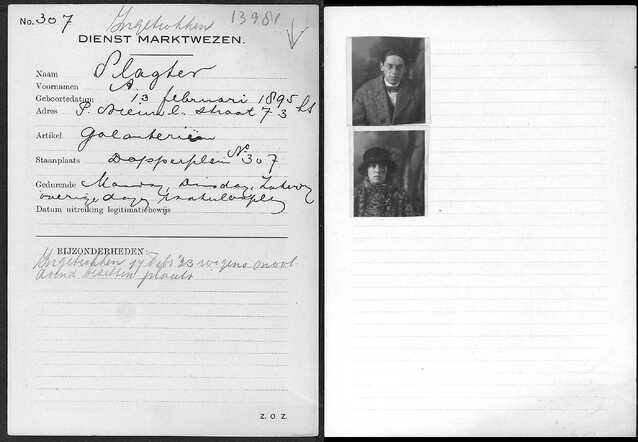 No. 307 Ingetrokken 13981
DIENST MARKTWEZEN.
Naam Slagter
Voornamen A.
Geboortedatum 13 februari 1895
Adres P. straat 73 hs
Artikel Galanteriën
Staanplaats Dapperplein No 307
Gedurende Maandag, Dinsdag, Zaterdag
overige dagen
Datum uitreiking legitimatiebewijs
BIJZONDERHEDEN:
Ingetrokken 17 '23 wegens onvol-
doend bezetten plaats
Z. O. Z.